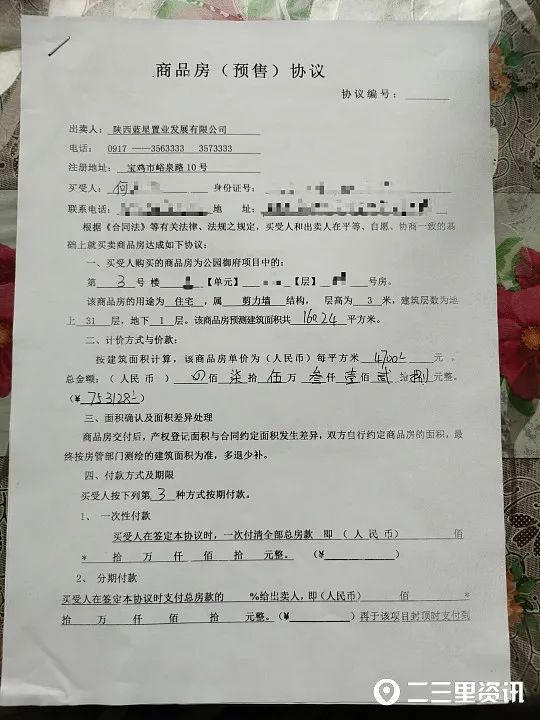 商品房（预售）协议
协议编号：
出卖人：陕西蓝星置业发展有限公司
电话： 0917 ——3563333 3573333
注册地址： 宝鸡市峪泉路10号
买受人：何 身份证号：
联系电话： 地 址：
根据《合同法》等有关法律、法规之规定，买受人和出卖人在平等、自愿、协商一致的基
础上就买卖商品房达成如下协议：
一、买受人购买的商品房为公园御府项目中的：
第 3 号 楼 【单元】 【层】 号房。
该商品房的用途为 住宅 ，属 剪力墙 结构， 层高为 3 米，建筑层数为地
上 31 层，地下 1 层。该商品房预测建筑面积共 160.24 平方米。
二、计价方式与价款：
按建筑面积计算，该商品房单价为（人民币）每平方米 4700 元 。
总金额：（ 人 民 币 ） 佰 柒 拾 伍 万 叁 仟 壹 佰 贰 拾 捌 元整。
（¥ 753128 ）
三、面积确认及面积差异处理
商品房交付后，产权登记面积与合同约定面积发生差异，双方自行约定商品房的面积，最
终按房管部门测绘的建筑面积为准，多退少补。
四、付款方式及期限
买受人按下列第 3 种方式按期付款。
1、 一次性付款
买受人在签定本协议时，一次付清全部总房款 即 （ 人 民 币） 佰
* 拾 万 仟 佰 拾 元整。 （¥ ）
2、 分期付款
买受人在签定本协议时支付总房款的 %给出卖人，即（人民币） 佰 *
拾 万 仟 佰 拾 元整。（¥ ）再于该项目封顶时支付到
二三里资讯